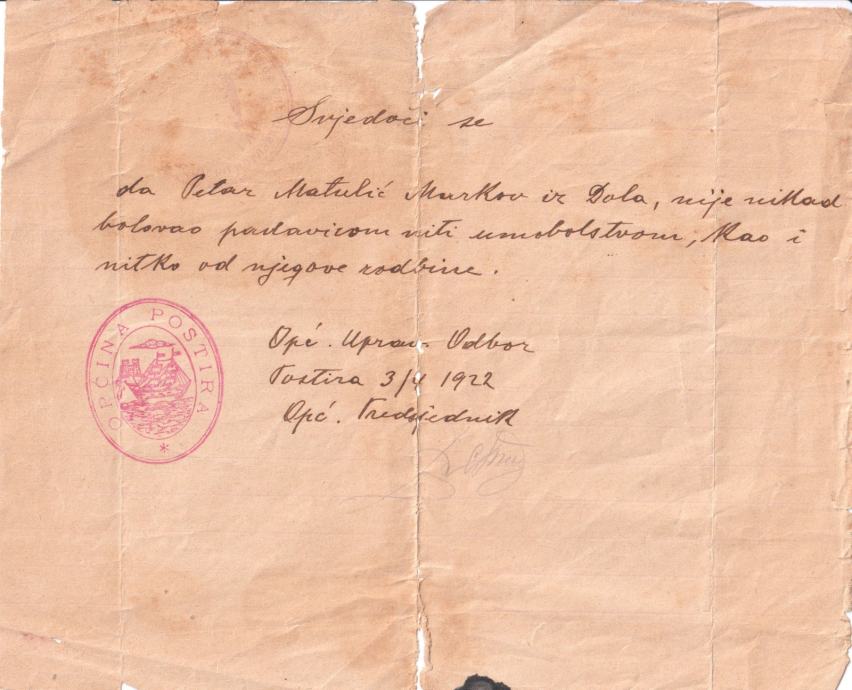 Svjedoči se
da Petar Matulić Markov iz Dola, nije nikad
bolovao padavicom niti umobolstvom, kao i
nitko od njegove rodbine.
OPĆINA POSTIRA
Opć. Uprav. Odbor
Postira 3/4 1922
Opć. Predsjednik